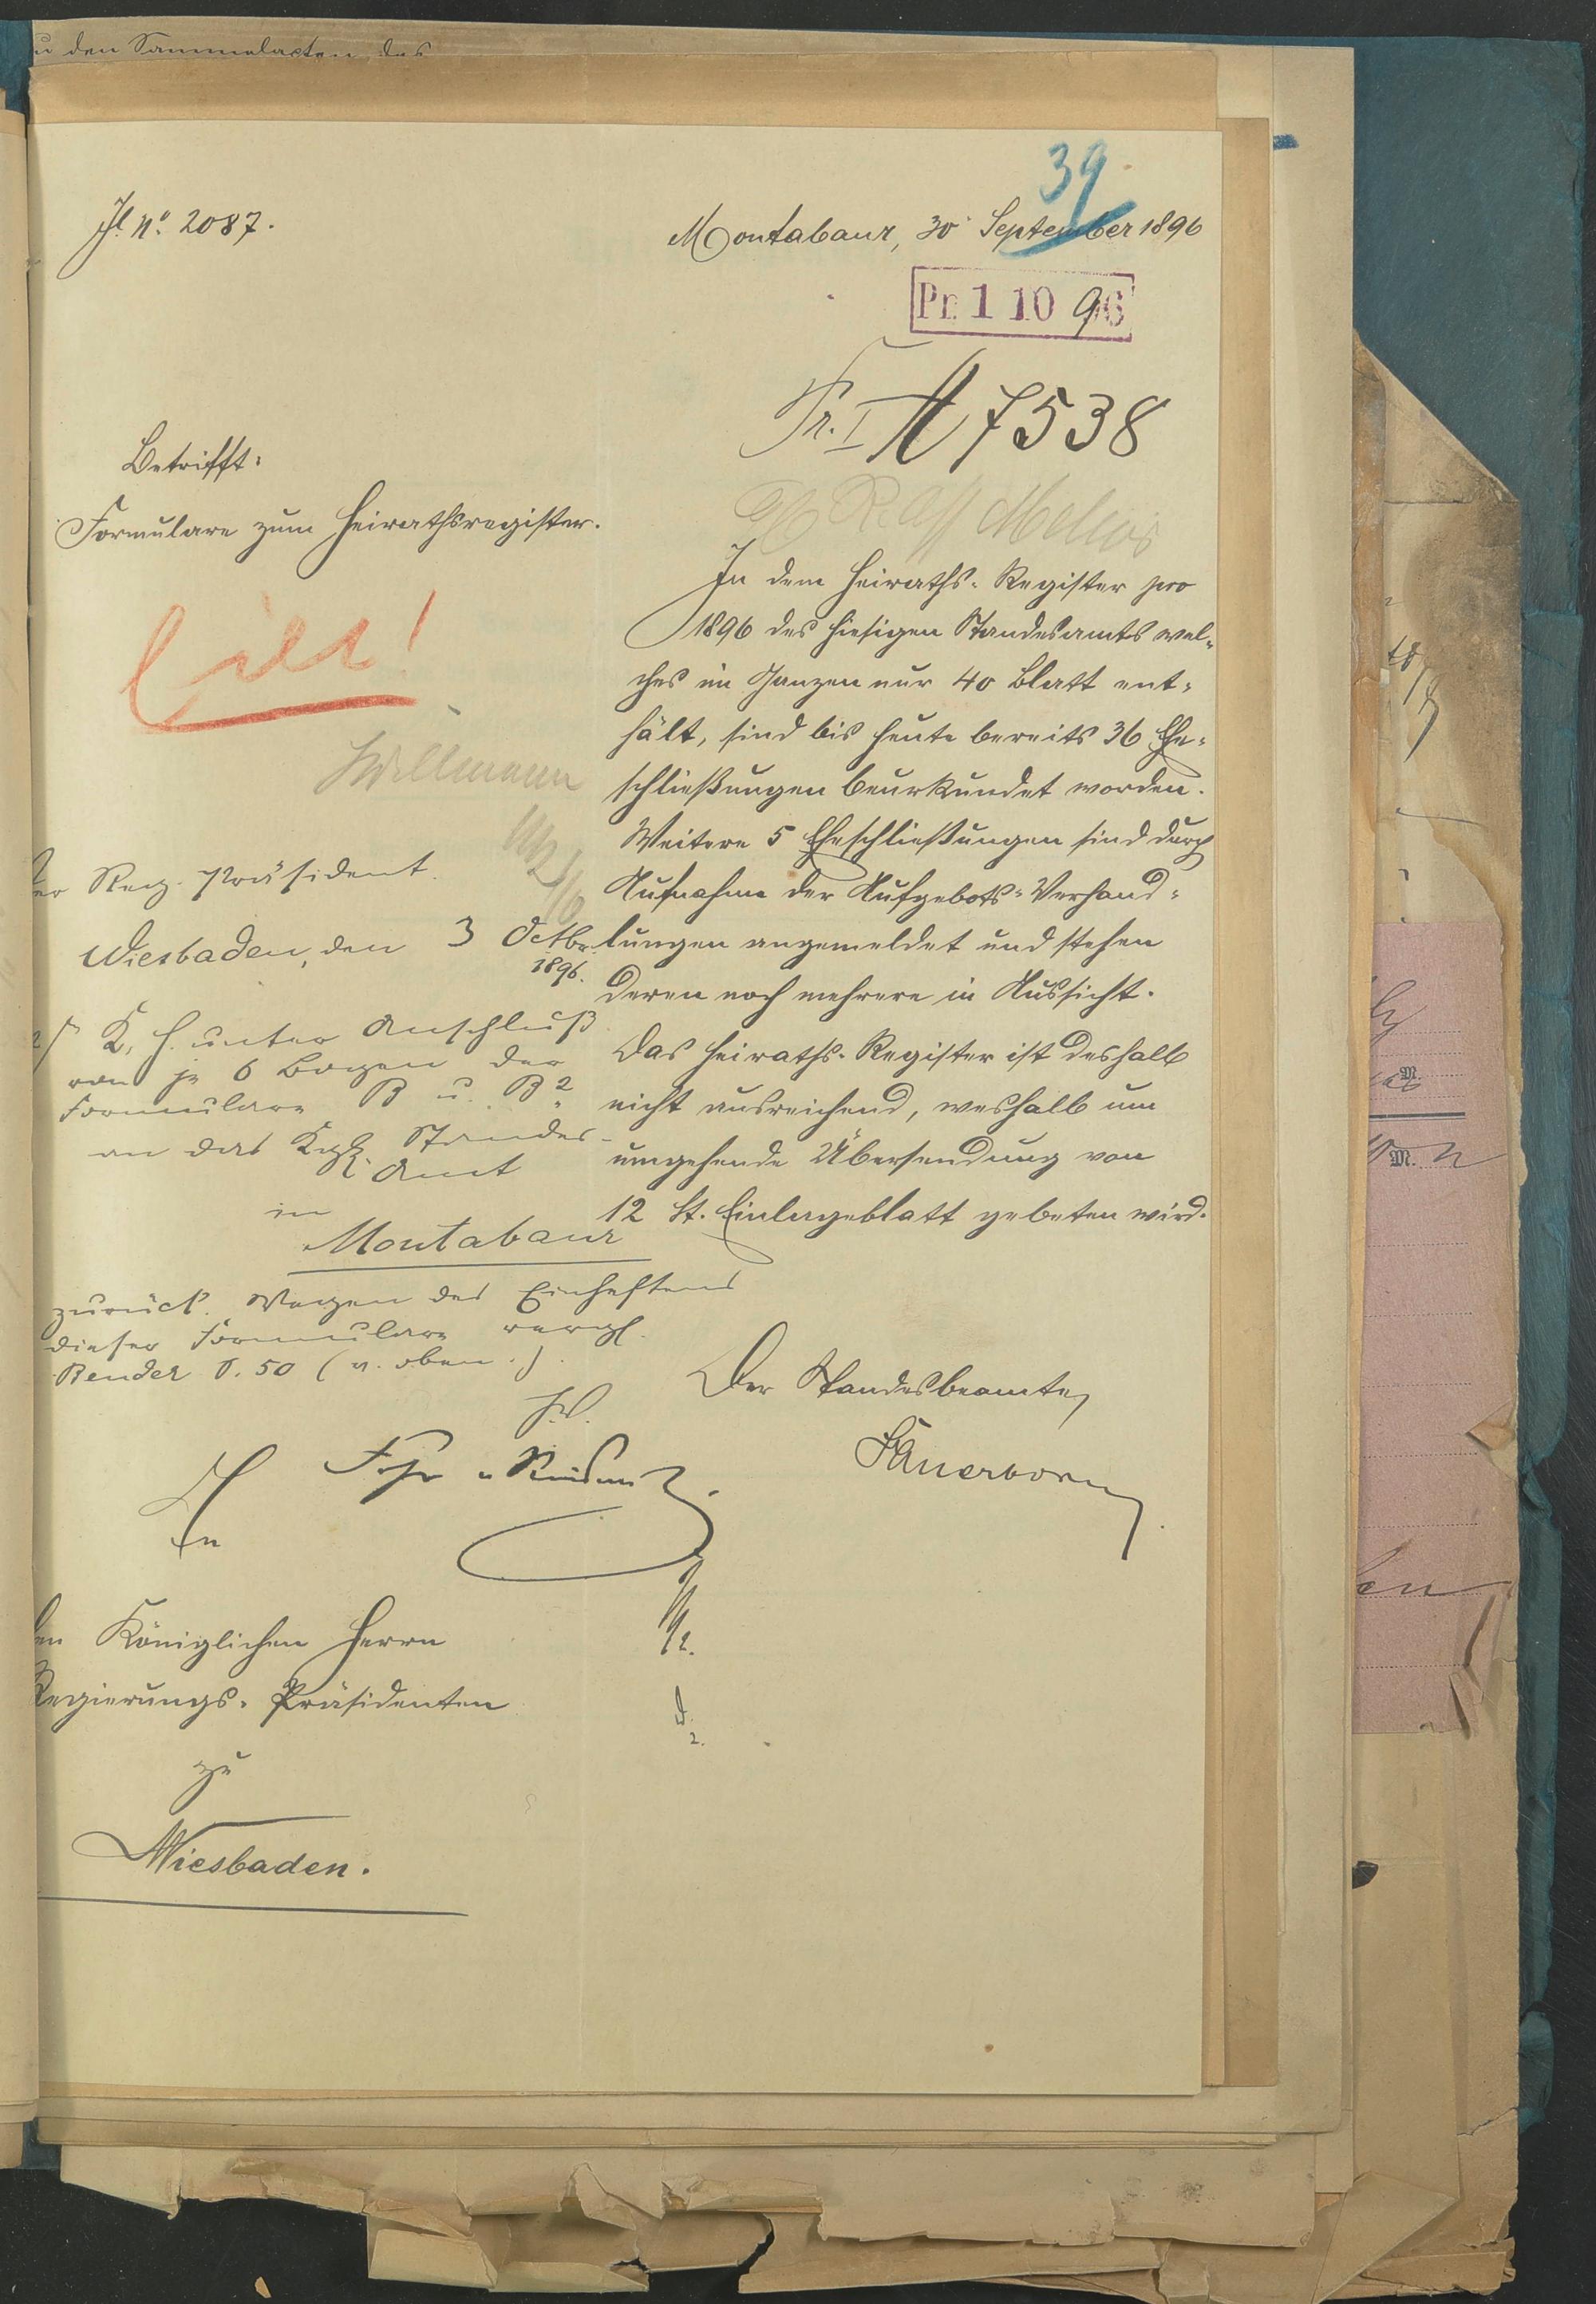 zu den Sammelacten des
39
J. No. 2087.
Montabaur, 30 September 1896
Pr. 1 10 96
Pr. I A 7538
Betrifft:
Formulare zum Heirathsregister.
Eilt!
In dem Heiraths-Register pro
1896 des hiesigen Standesamts wel-
ches im Ganzen nur 40 Blatt ent-
hält, sind bis heute bereits 36 Ehe-
schließungen beurkundet worden.
Weitere 5 Eheschließungen sind durch
Aufnahme der Aufgebots-Verhand-
lungen angemeldet und stehen
deren noch mehrere in Aussicht.
Das Heiraths-Register ist deshalb
nicht ausreichend, weshalb um
umgehende Übersendung von
12 St. Einlageblatt gebeten wird.
Der Standesbeamte,
Sauerborn
Der Reg. Präsident.
Wiesbaden, den 3 Octbr.
1896.
K. H. unter Anschluß
von je 6 Bogen der
Formulare B u. B2
an das Kgl. Standes-
Amt
in
Montabaur
zurück. Wegen des Einheftens
dieser Formulare vergl.
Bender S. 50 (v. oben.).
An
den Königlichen Herrn
Regierungs-Präsidenten
zu
Wiesbaden.